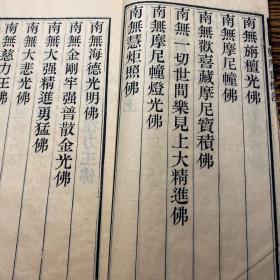 南無旃檀光佛
南無摩尼幢佛
南無歡喜藏摩尼寶積佛
南無一切世間樂見上大精進佛
南無摩尼幢燈光佛
南無慧炬照佛
南無海德光明佛
南無金剛牢强普散金光佛
南無大强精進勇猛佛
南無大悲光佛
南無慈力王佛